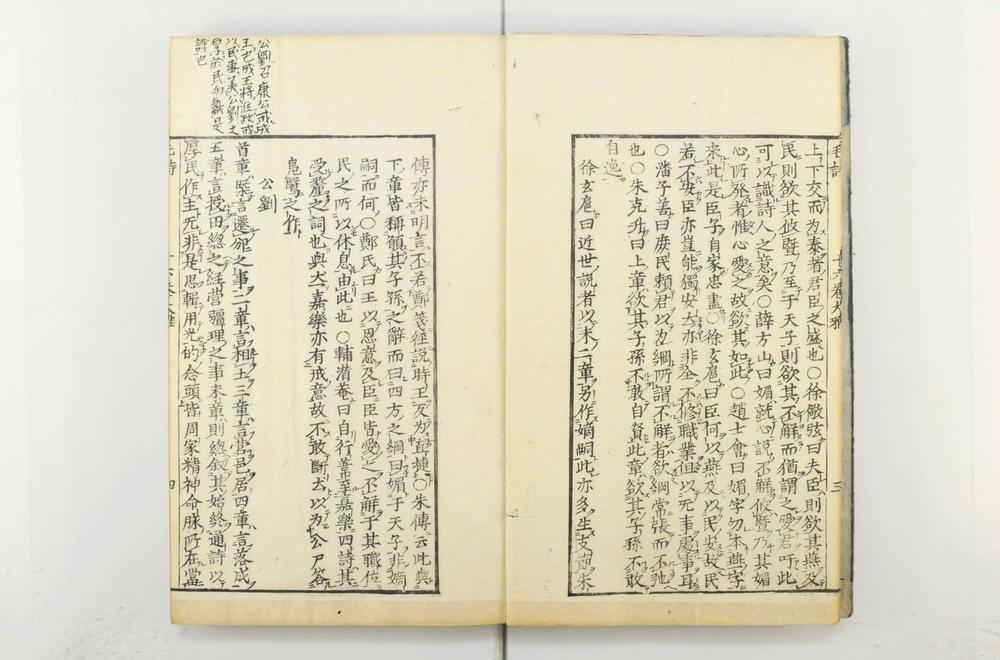 上下交而為泰者君臣之盛也○徐儆弦曰夫臣則欲其燕及
民則欲其攸墍乃至于天子則欲其不解而猶謂之愛君吁此
可以識詩人之意矣○薛方山曰媚就心說不解攸墍乃其媚
心所發者惟心愛之故欲其如此○趙士會曰媚字勿本燕字
來此是臣子自家忠盡○徐玄扈曰臣何以燕及以民安故民
若不安臣亦豈能獨安夫亦非全不修職業但以无事處事耳
○潘子善曰庶民賴君以為綱所謂不解者欲綱常張而不弛
也○朱克升曰上章欲其子孫不敢自貧此章欲其子孫不敢
自逸
徐玄扈曰近世說者以末二章另作嫡嗣此亦多生支節朱
傳亦未明言不若鄭箋徑說時王反為直捷○朱傳云此與
下章皆稱願其子孫之辭而曰四方之綱曰媚于天子非嫡
嗣而何○鄭氏曰王以恩意及臣臣皆愛之不解于其職位
民之所以休息由此也○輔潛菴曰自行葦至嘉樂四詩其
受釐之詞也與夫嘉樂亦有戒意故不敢斷去以為公尸答
鳧鷖之作
公劉
首章槩言遷豳之事二章言相土三章言營邑居四章言落成
五章言授田總之經營疆理之事末章則總叙其始終通詩以
厚民作主无非是思輯用光的念頭皆周家精神命脉所在當
公劉召康公戒成
王也成王將涖政戒
以民事美公劉之
厚於民而獻是
詩也
毛詩
十六卷大雅
三
四